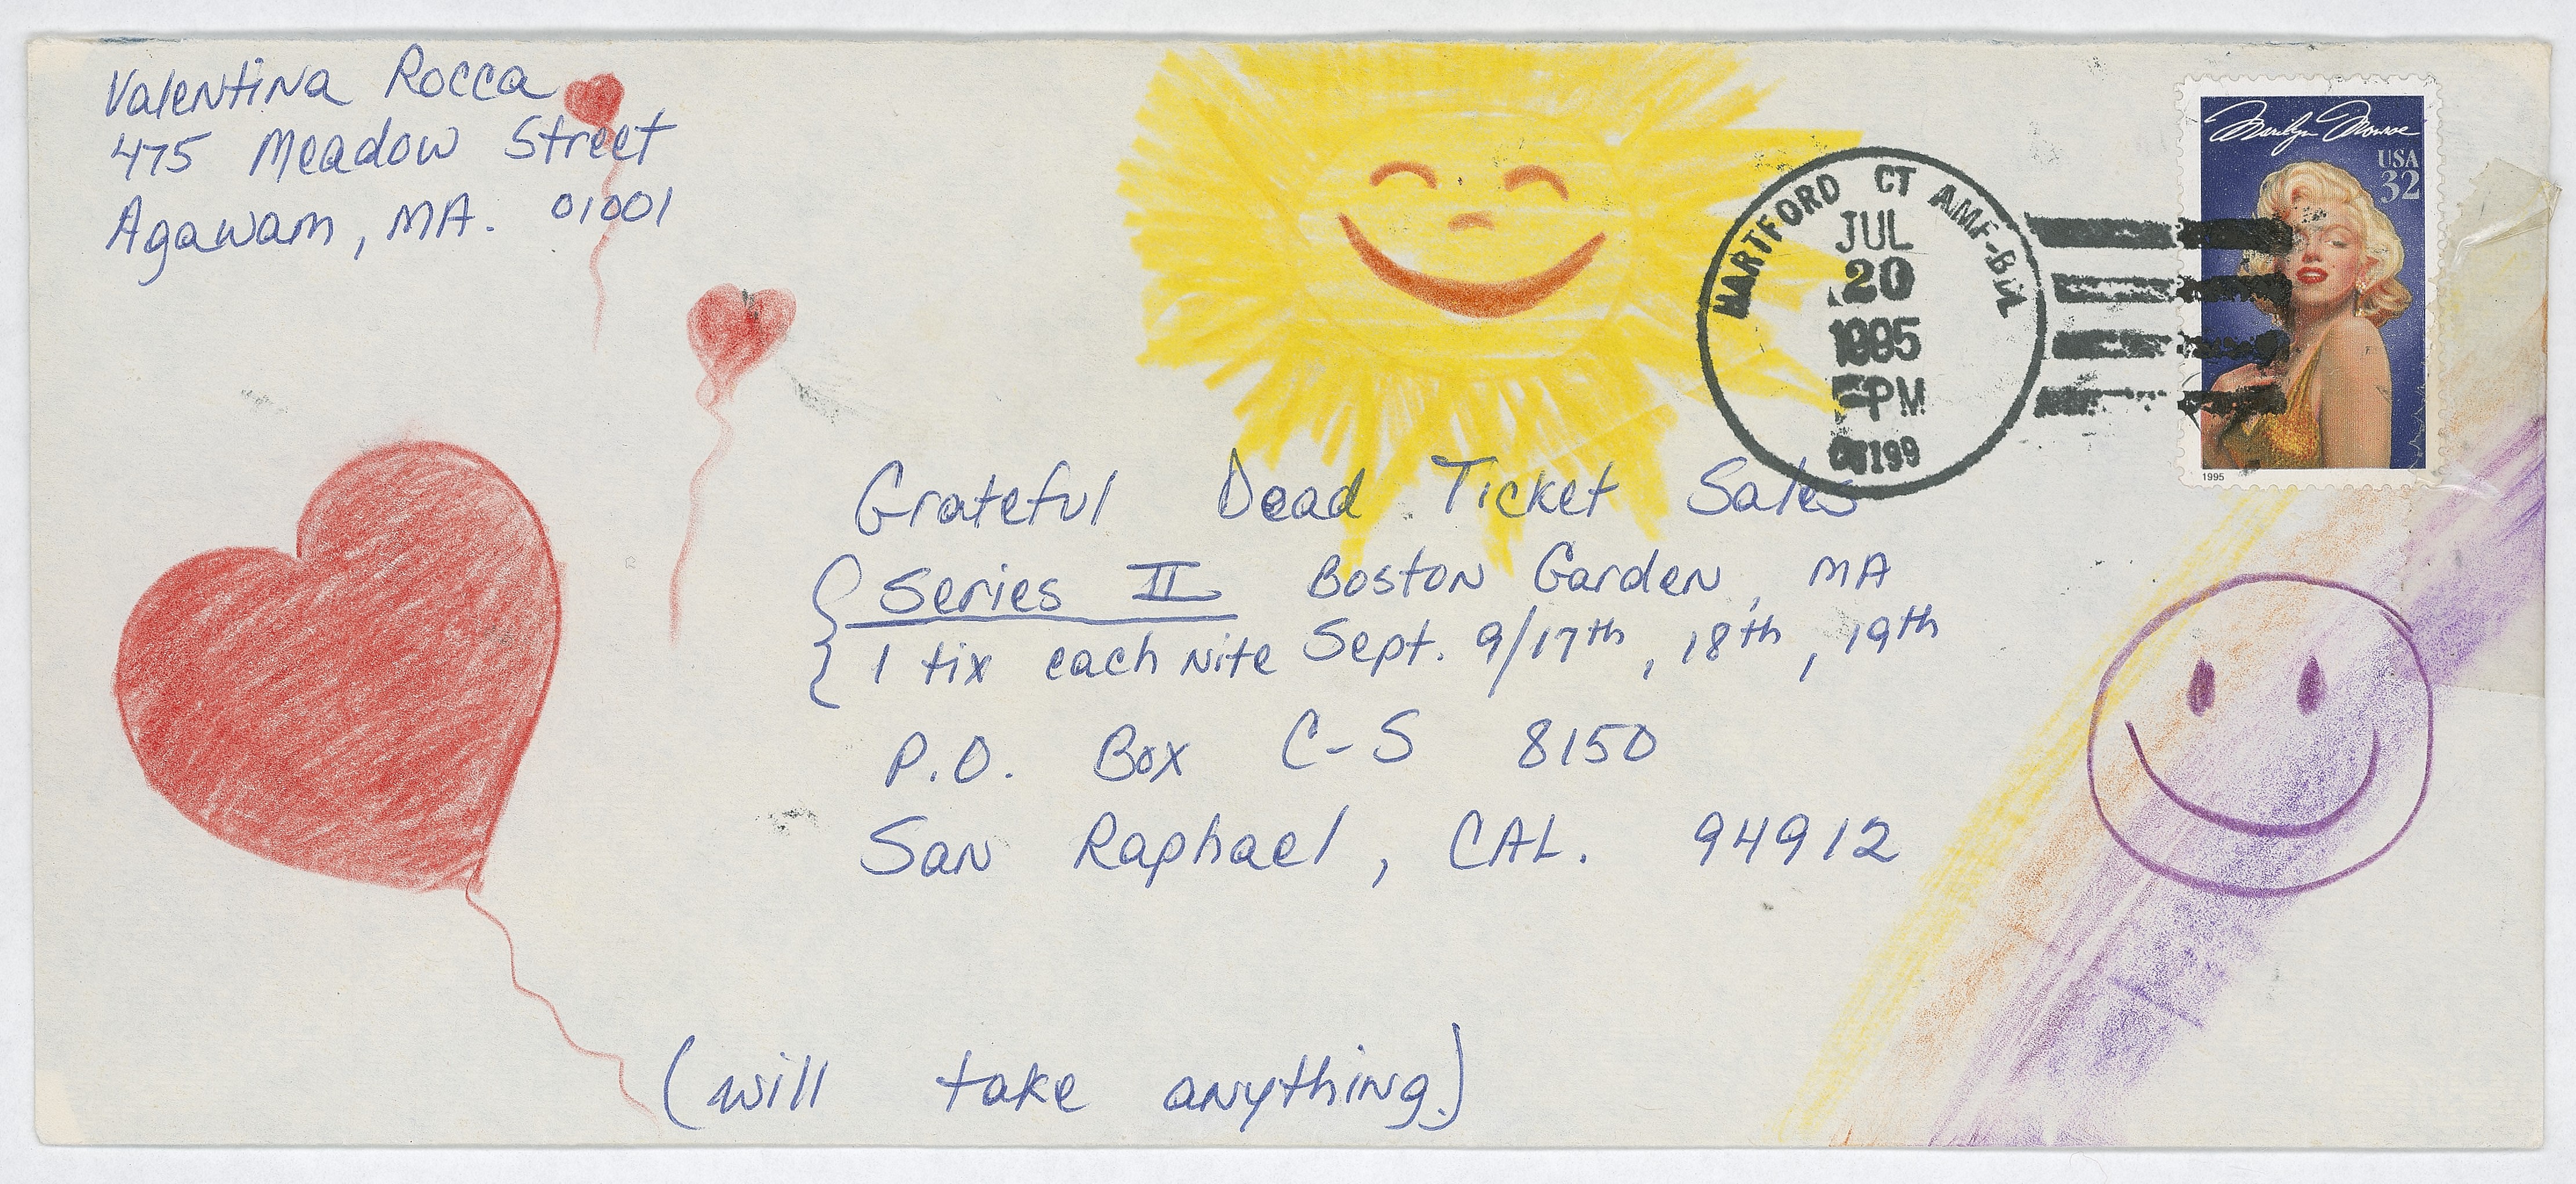 Valentina Rocca
475 Meadow Street
Agawam, MA. 01001
HARTFORD CT AMF-BDL
JUL
20
1995
PM
06199
Marilyn Monroe
USA
32
1995
Grateful Dead Ticket Sales
Series II Boston Garden, MA
1 tix each nite Sept. 9/17th, 18th, 19th
P.O. Box C-S 8150
San Raphael, CAL. 94912
(will take anything.)